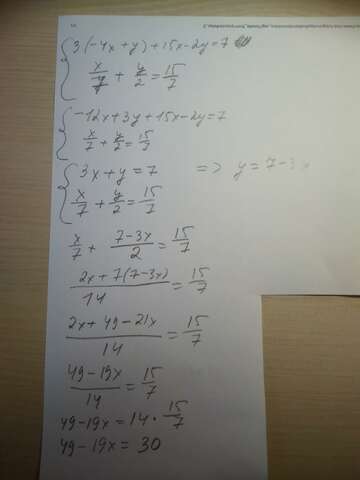 3(-4x+y)+15x-2y=7
x/7 + y/2 = 15/7
-12x+3y+15x-2y=7
x/7 + y/2 = 15/7
3x+y=7 => y=7-3x
x/7 + y/2 = 15/7
x/7 + (7-3x)/2 = 15/7
(2x+7(7-3x))/14 = 15/7
(2x+49-21x)/14 = 15/7
(49-19x)/14 = 15/7
49-19x=14·15/7
49-19x=30